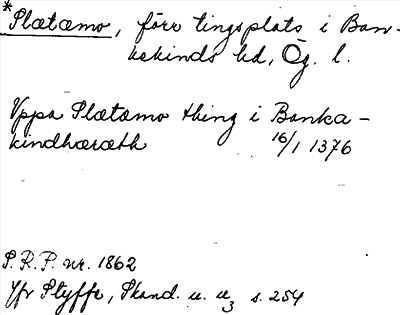 *Slætæmo, förr tingsplats i Ban-
kekinds hd, Ög. l.
Vppa Slætæmo thing i Banka-
kindhæræth 16/1 1376
S.R.P. nr. 1862
Jfr Styffe, Skand. u. u3 s. 254